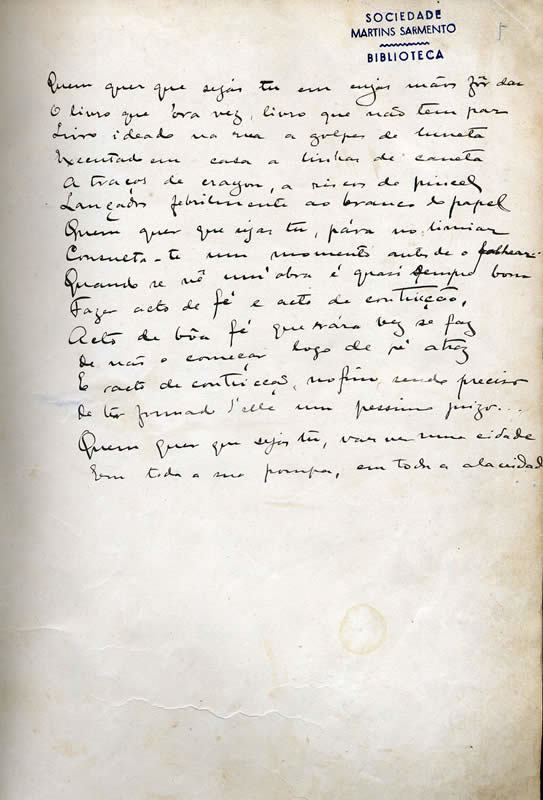 SOCIEDADE
MARTINS SARMENTO
BIBLIOTECA
Quem quer que sejas tu em cujas mãos fôr dar
O livro que óra vez, livro que não tem par
Livro ideado na rua a golpes de luneta
Executado em casa a linhas de caneta
A traços de crayon, a riscos de pincel
Lançados febrilmente ao branco do papel
Quem quer que sejas tu, pára no limiar
Consulta-te um momento antes de o folhear.
Quando se vê um'obra é quasi sempre bom
Fazer acto de fé e acto de contricção,
Acto de bôa fé que rára vez se faz
De não o começar logo de ré atraz
E acto de contricção, no fim, sendo preciso
De ter formado d'elle um pessimo juizo...
Quem quer que sejas tu, vaes ver uma cidade
Em toda a sua pompa, em toda a alacridade